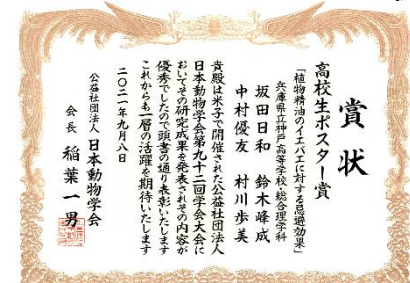 賞状
高校生ポスター賞
「植物精油のイエバエに対する忌避効果」
兵庫県立神戸高等学校・総合理学科
坂田日和 鈴木峰成
中村優友 村川歩美
貴殿は米子で開催された公益社団法人
日本動物学会第九十二回学会大会に
おいてその研究成果を発表されその内容が
優秀でしたので頭書の通り表彰いたします
これからも一層の活躍を期待いたします
二〇二一年九月八日
公益社団法人 日本動物学会
会長 稲葉一男